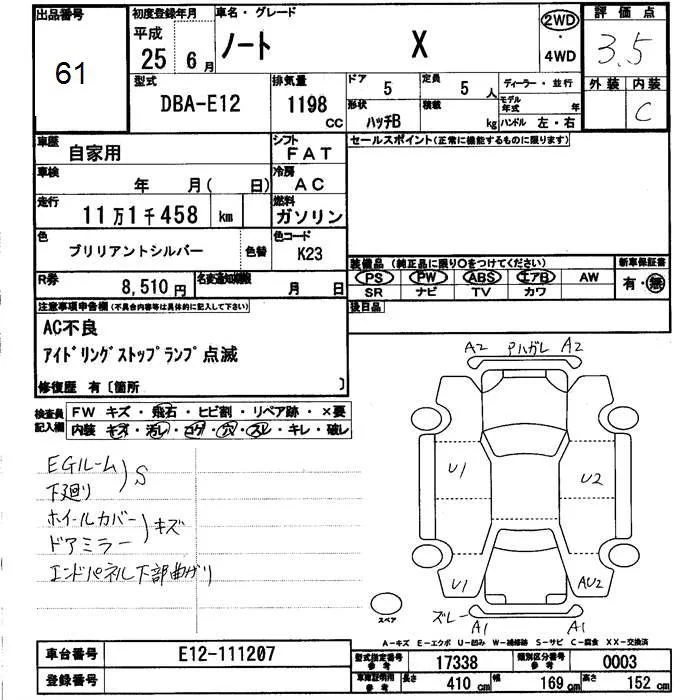 出品番号
61
初度登録年月
平成
25年 6月
車名・グレード
ノート X
2WD
・
4WD
評価点
3.5
外装 内装
C
型式
DBA-E12
排気量
1198 CC
ドア
5
定員
5人
形状
ハッチB
積載
kg
ディーラー・並行
モデル年式 年
ハンドル 左・右
車歴
自家用
シフト
FAT
車検
年 月( 日)
冷房
AC
走行
11万1千458 km
燃料
ガソリン
色
ブリリアントシルバー
色替
色コード
K23
R券
8,510円
名変通知期限
月 日
セールスポイント(正常に機能するものに限ります)
装備品 (純正品に限り○をつけてください)
PS PW ABS エアB AW
SR ナビ TV カワ
新車保証書
有・無
後日品
注意事項申告欄(不具合内容等は具体的に記入して下さい)
AC不良
アイドリングストップランプ点滅
修復歴 有〔箇所 〕
検査員記入欄
FW キズ・飛石・ヒビ割・リペア跡・×要
内装 キズ・汚レ・コゲ・穴・スレ・キレ・破レ
EGルーム
下廻り
S
ホイールカバー
ドアミラー
キズ
エンドパネル下部曲がり
A2 Pハガレ A2
U1 U2
U1 AU2
ズレ A1 A1
スペア
A-キズ E-エクボ U-凹み W-補修跡 S-サビ C-腐食 XX-交換済
車台番号
E12-111207
登録番号
型式指定番号 参考
17338
類別区分番号 参考
0003
車庫証明用 参考
長さ 410 cm
幅 169 cm
高さ 152 cm